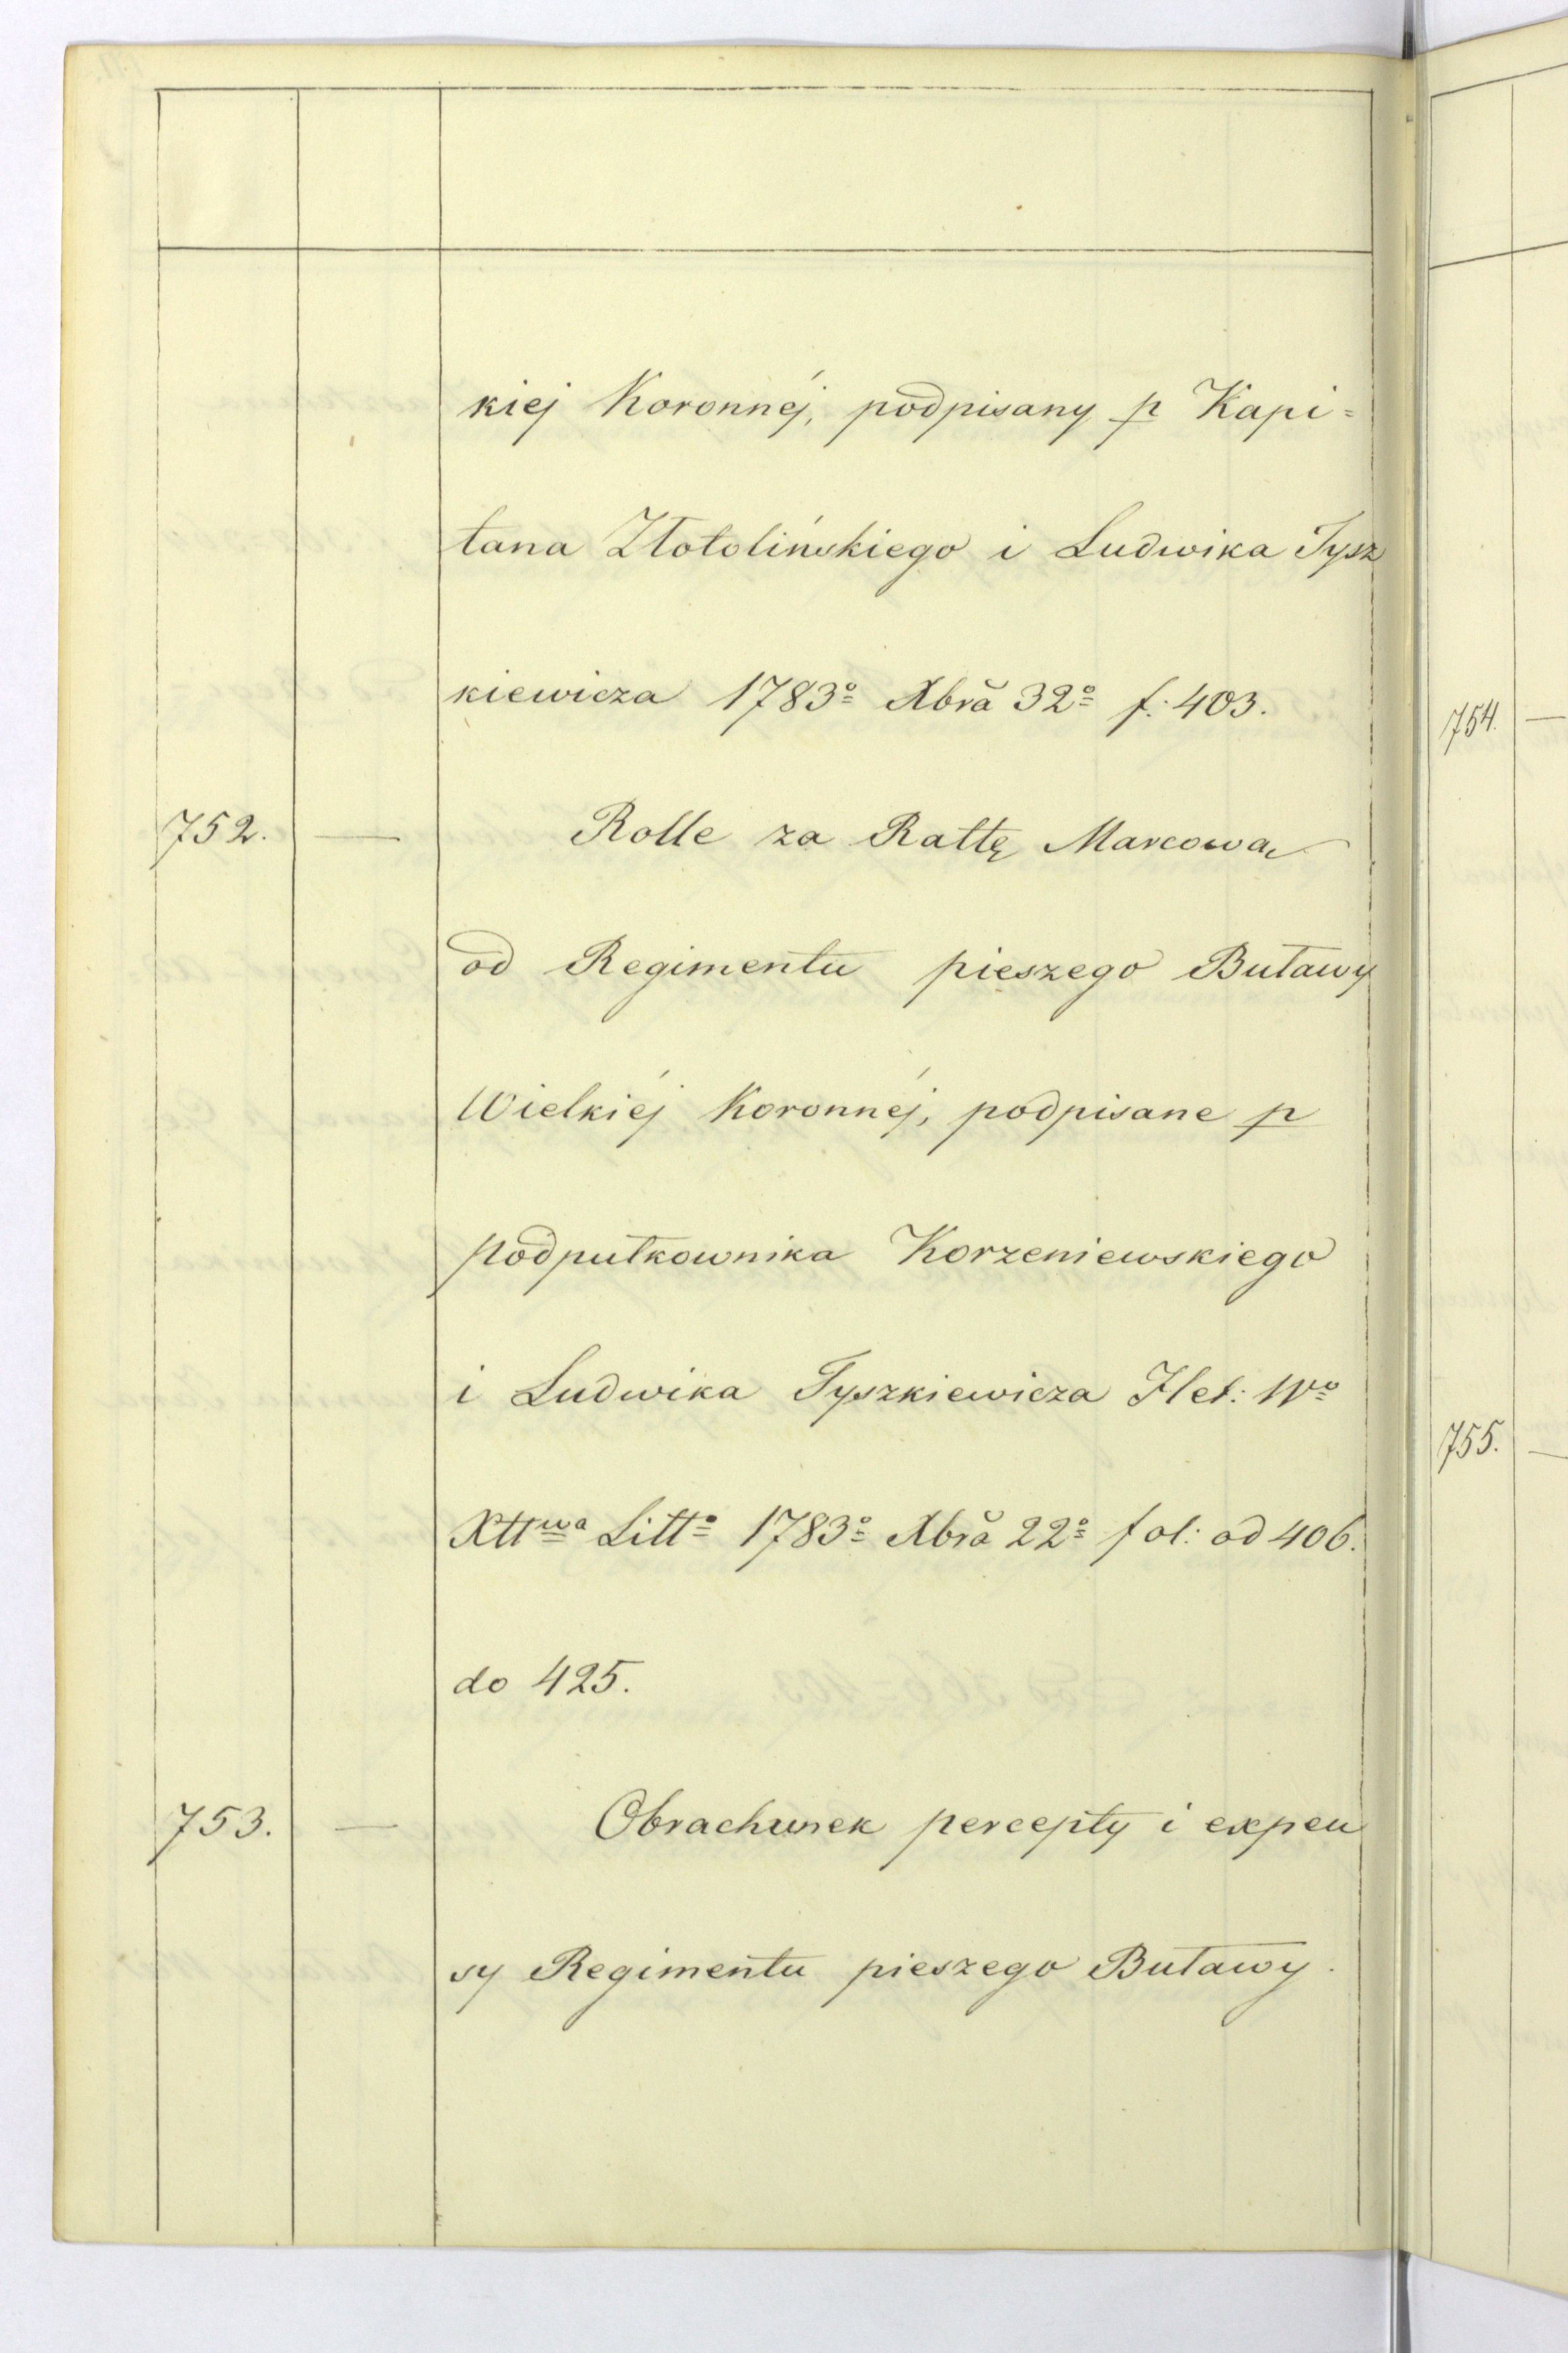 kiej Koronnéj, podpisany p Kapi=
tana Złotolińskiego i Ludwika Tysz
kiewicza 1783º Xbrã 32º f: 403.
752. — Rolle za Rattę Marcową
od Regimentu pieszego Buławy
Wielkiéj Koronnéj, podpisane p
podpułkownika Korzeniewskiego
i Ludwika Tyszkiewicza Het: Wº
Xttwa Littº 1783º Xbrã 22º fol: od 406.
do 425.
753. — Obrachunek percepty i expen
sy Regimentu pieszego Buławy.
754. —
755. —